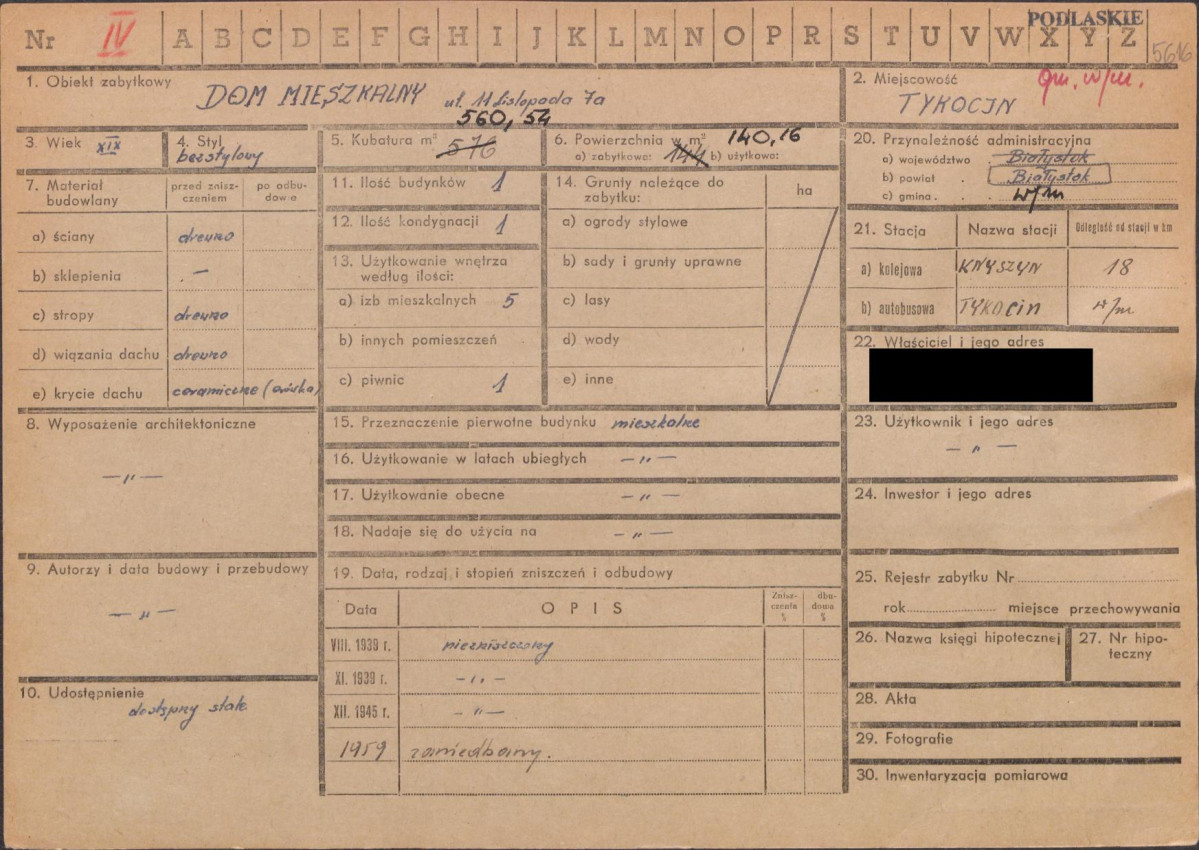 PODLASKIE
Nr IV A B C D E F G H I J K L M N O P R S T U V W X Y Z
5616
1. Obiekt zabytkowy
DOM MIESZKALNY ul. 11 Listopada 7a
2. Miejscowość
gm. w/m.
TYKOCIN
3. Wiek XIX
4. Styl
bezstylowy
5. Kubatura m³
560,54
576
6. Powierzchnia w m²
140,16
a) zabytkowa: 144 b) użytkowa:
7. Materiał budowlany
przed zniszczeniem
po odbudowie
a) ściany drewno
b) sklepienia . —
c) stropy drewno
d) wiązania dachu drewno
e) krycie dachu ceramiczne
8. Wyposażenie architektoniczne
— „ —
9. Autorzy i data budowy i przebudowy
— „ —
10. Udostępnienie
dostępny stale
11. Ilość budynków 1
12. Ilość kondygnacji 1
13. Użytkowanie wnętrza
według ilości:
a) izb mieszkalnych 5
b) innych pomieszczeń
c) piwnic 1
14. Grunty należące do
zabytku:
ha
a) ogrody stylowe
b) sady i grunty uprawne
c) lasy
d) wody
e) inne
15. Przeznaczenie pierwotne budynku mieszkalne
16. Użytkowanie w latach ubiegłych — „ —
17. Użytkowanie obecne — „ —
18. Nadaje się do użycia na — „ —
19. Data, rodzaj i stopień zniszczeń i odbudowy
Data
OPIS
Zniszczenia %
dbudowa %
VIII. 1939 r. niezniszczony
XI. 1939 r. — „ —
XII. 1945 r. — „ —
1959 zaniedbany.
20. Przynależność administracyjna
a) województwo Białystok
b) powiat . Białystok
c) gmina . . w/m
21. Stacja
Nazwa stacji
Odległość od stacji w km
a) kolejowa KNYSZYN 18
b) autobusowa TYKOCIN w/m
22. Właściciel i jego adres
23. Użytkownik i jego adres
— „ —
24. Inwestor i jego adres
25. Rejestr zabytku Nr
rok miejsce przechowywania
26. Nazwa księgi hipotecznej
27. Nr hipoteczny
28. Akta
29. Fotografie
30. Inwentaryzacja pomiarowa